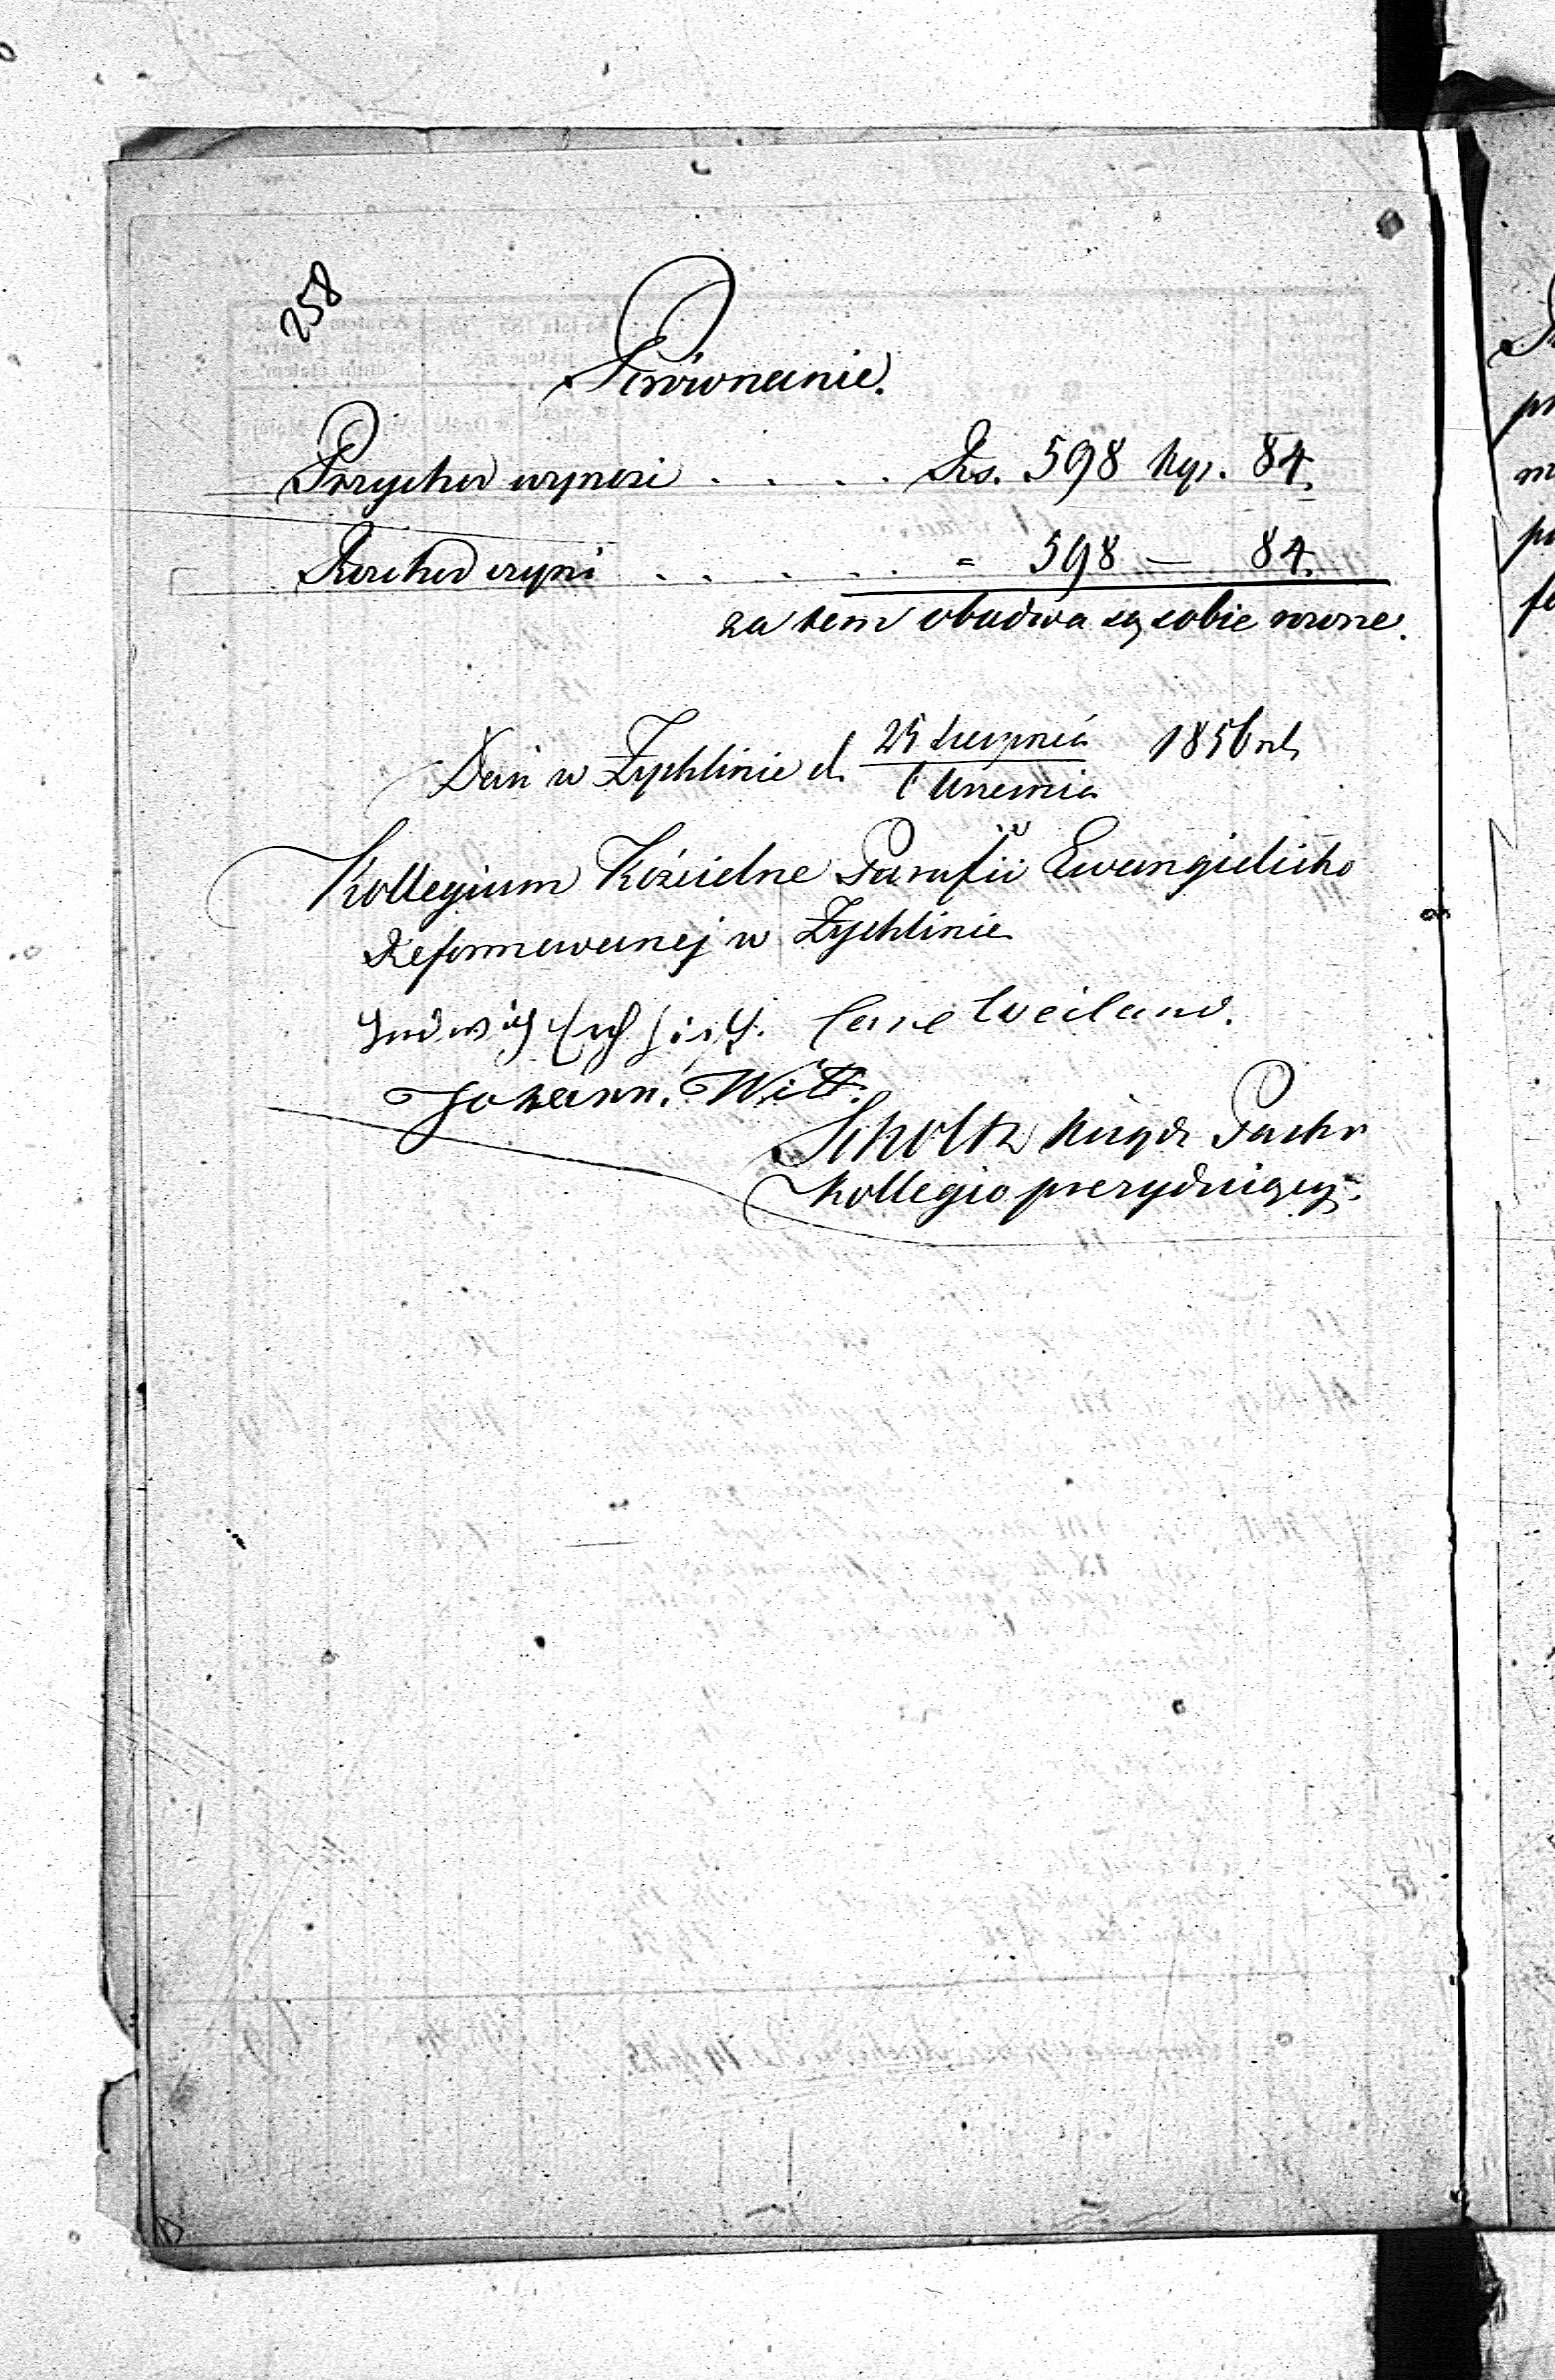 258
Porównanie.
Przychód wynosi . . . . Rs. 598 kop. 84.
Rozchód czyni . . . . . = 598 — 84.
za tem obadwa są sobie równe.
Dan w Żychlinie d. 25 Sierpnia / 6 Września 1856 rk
Kollegium Kościelne Parafii Ewangielicko
Reformowanej w Żychlinie
Ludwig Carl Weiland.
Johann. Witt.
Scholtz Ksiądz Pastor
Kollegio prezydujący.